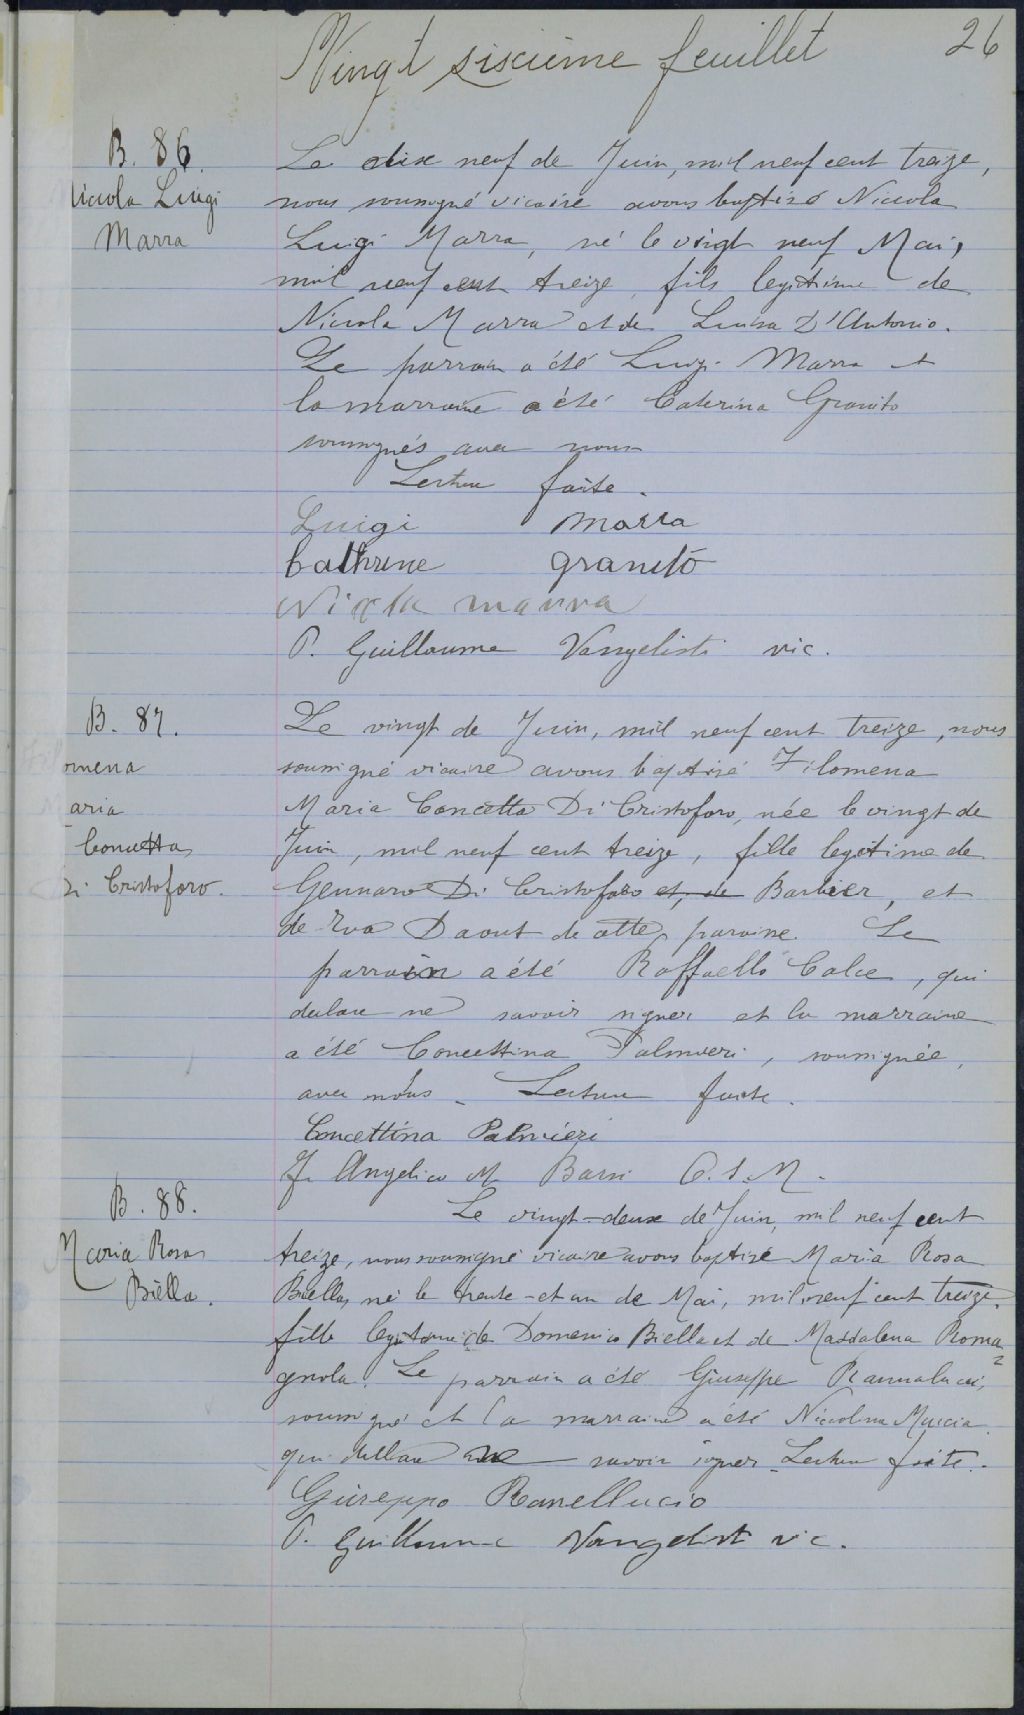 26
Vingt sixième feuillet
B. 86.
Niccola Luigi
Marra
Le dix neuf de Juin, mil neuf cent treize,
nous soussigné vicaire avons baptisé Niccola
Luigi Marra, né le vingt neuf Mai,
mil neuf cent treize, fils legitime de
Nicola Marra et de Luisa D'Antonio.
Le parrain a été Luigi Marra et
la marraine a été Caterina Granito
soussignés avec nous
Lecture faite.
Luigi Marra
Cathrine granito
marra
P. Guillaume Vangelisti vic.
B. 87.
omena
aria
Concetta
Di Cristoforo.
Le vingt de Juin, mil neuf cent treize, nous
soussigné vicaire avons baptisé Filomena
Maria Concetta Di Cristoforo, née le vingt de
Juin, mil neuf cent treize, fille legitime de
Gennaro Di Cristoforo et, de Barbier, et
de Eva Daout de cette paroisse. Le
parrain a été Raffaello Calce, qui
declare ne savoir signer et la marraine
a été Concettina Palmieri, soussignée,
avec nous. Lecture faite.
Concettina Palmieri
F. Angelico M. Barsi O.S.M.
B. 88.
Maria Rosa
Biella.
Le vingt-deux de Juin, mil neuf cent
treize, nous soussigné vicaire avons baptisé Maria Rosa
Biella, né le trente-et-un de Mai, mil neuf cent treize,
fille legitime de Domenico Biella et de Maddalena Roma=
gnola. Le parrain a été Giuseppe
soussigné et la marraine a été Niccolina Muccia
qui declare ne savoir signer. Lecture faite.
Giuseppo Ranellucio
P. Guillaume Vangelisti vic.